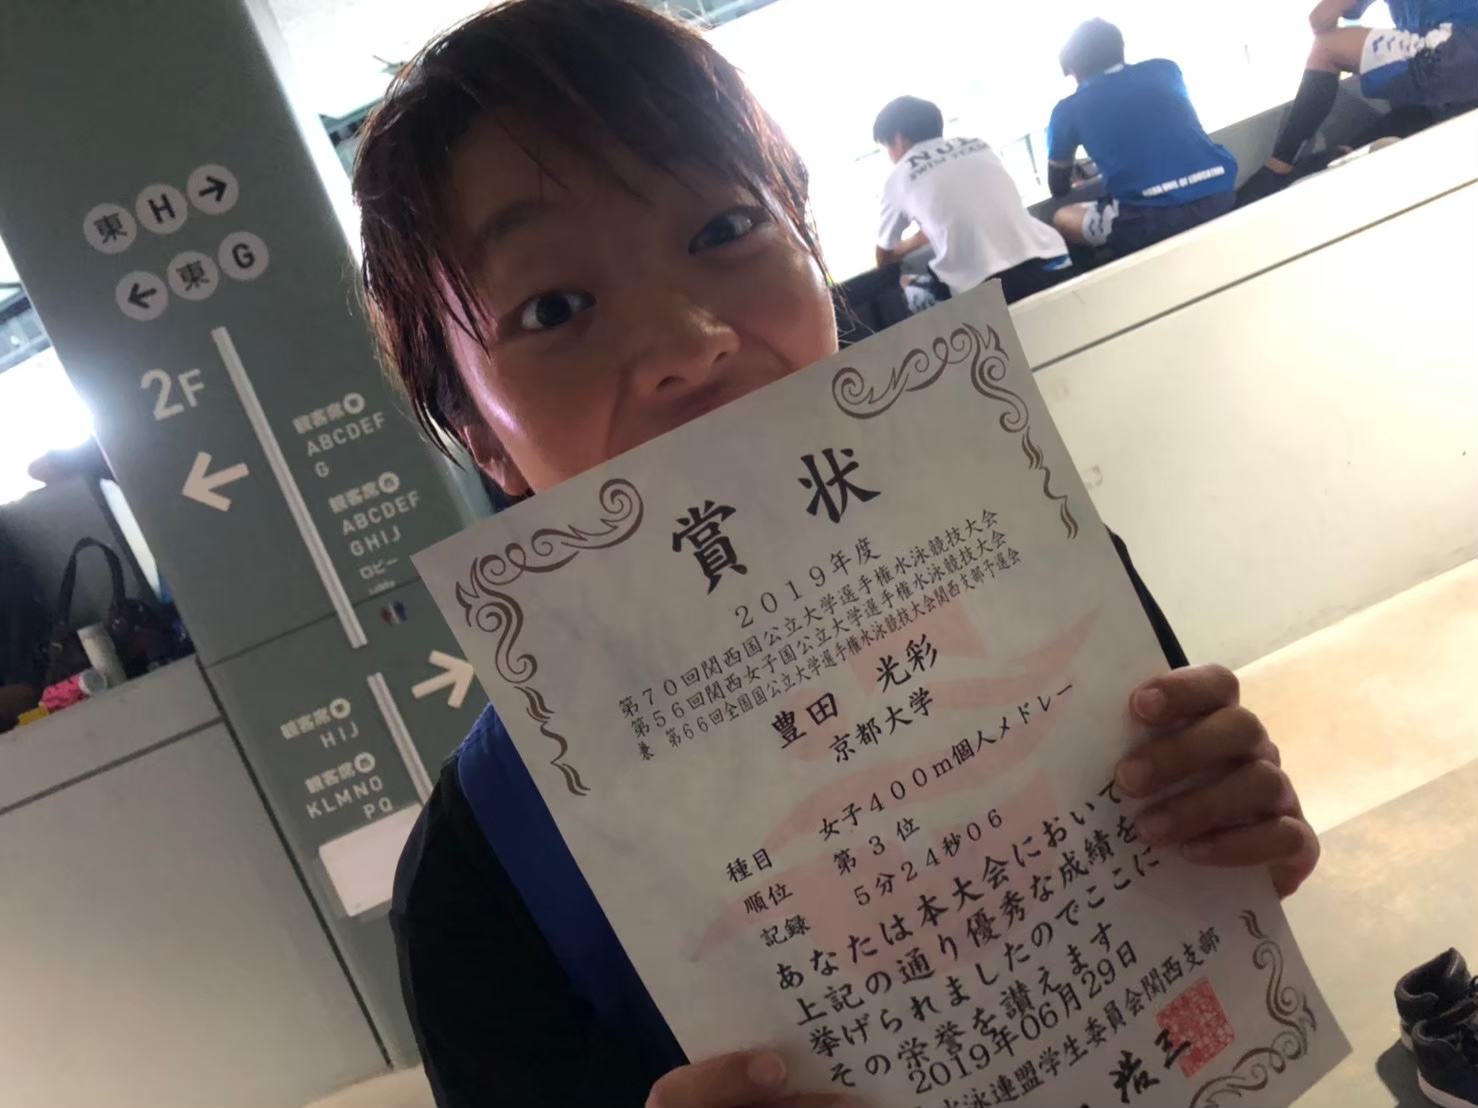 東 H →
← 東 G
2F
←
観客席
ABCDEF
G
観客席
ABCDEF
GHIJ
ロビー
Lobby
→
観客席
HIJ
観客席
KLMNO
PQ
SWIM TEAM
賞状
2019年度
第70回関西国公立大学選手権水泳競技大会
第56回関西女子国公立大学選手権水泳競技大会
兼 第66回全国国公立大学選手権水泳競技大会関西支部予選会
豊田 光彩
京都大学
種目 女子400m個人メドレー
順位 第3位
記録 5分24秒06
あなたは本大会において
上記の通り優秀な成績を
挙げられましたのでここに
その栄誉を讃えます
2019年06月29日
水泳連盟学生委員会関西支部
浩三